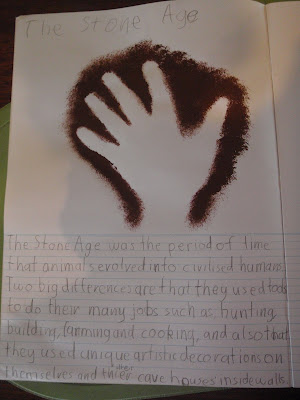 The Stone Age
The Stone Age was the period of time
that animals evolved into civilised humans.
Two big differences are that they used tools
to do their many jobs such as: hunting,
building, farming and cooking, and also that
they used unique artistic decorations on
themselves and their cave houses inside walls.